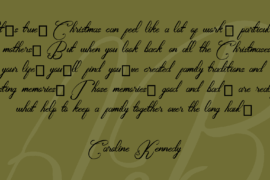 t□s true□ Christmas can feel like a lot of work□ particul
mothers□ But when you look back on all the Christmases
your life□ you□ll find you□ve created family traditions and
sting memories□ Those memories□ good and bad□ are real
what help to keep a family together over the long haul□
Caroline Kennedy